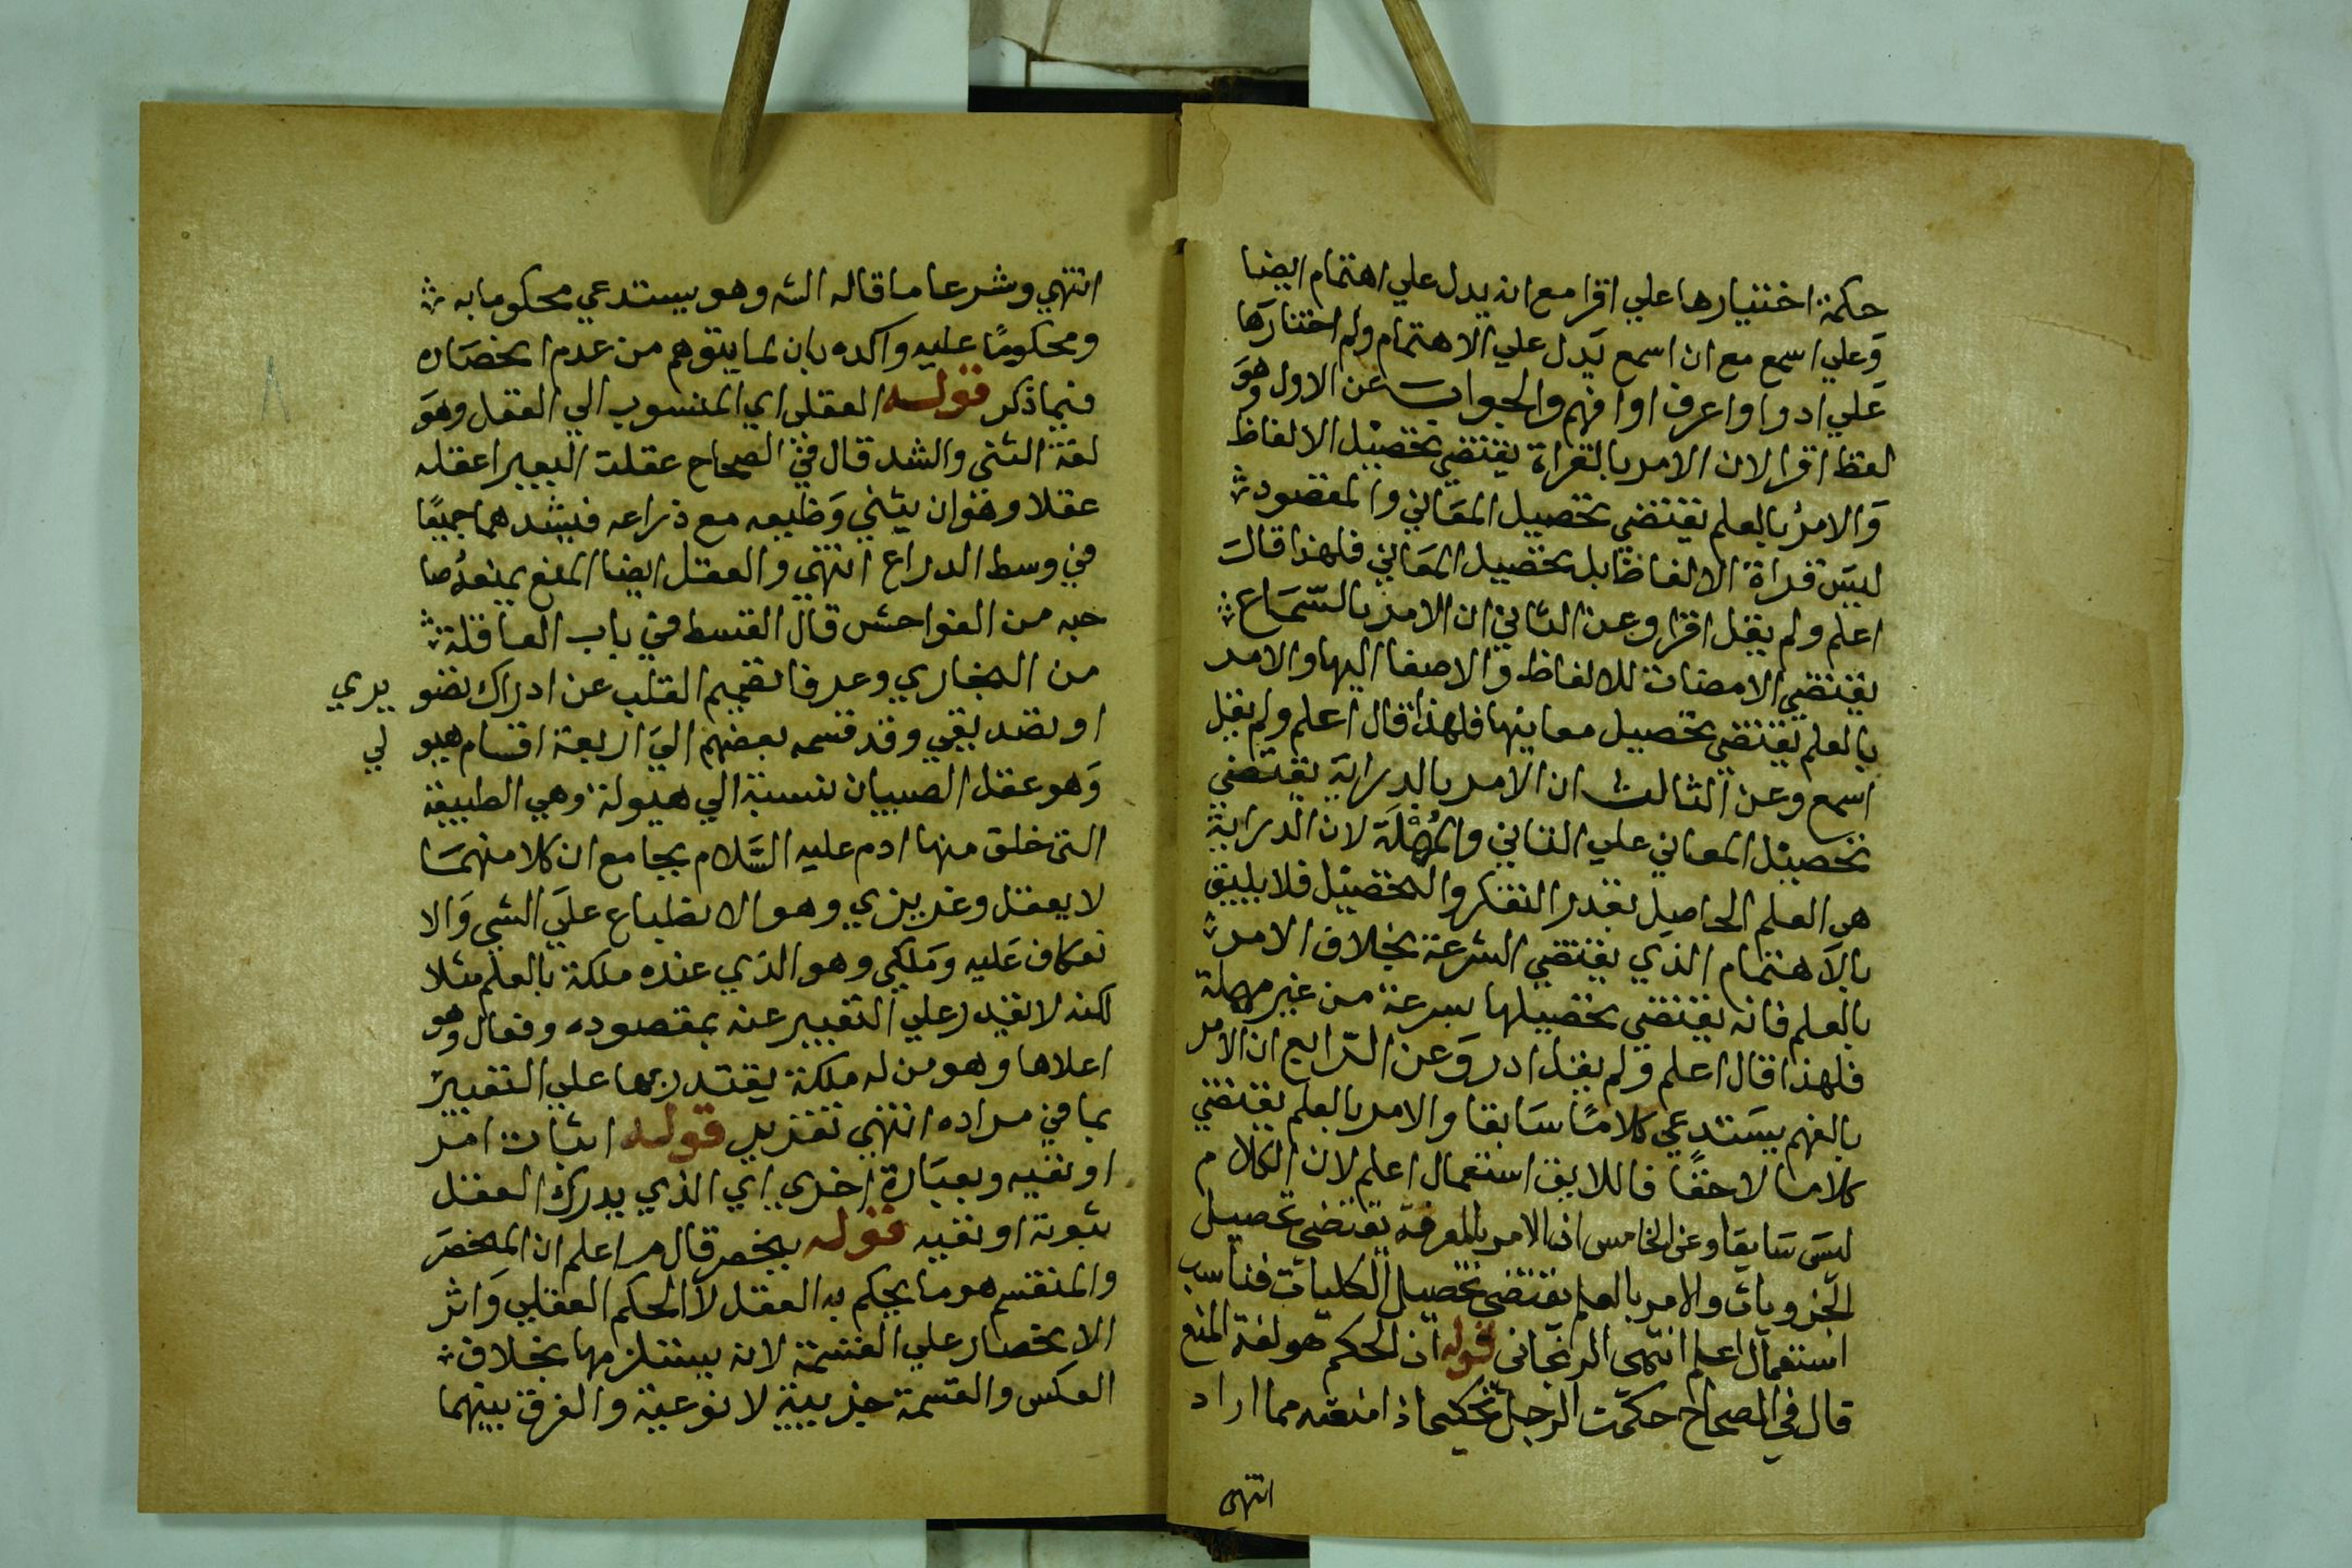 حكمة اختيارها علي اقرا مع انه يدل علي اهتمام ايضا
وعلي اسمع مع ان اسمع يدل علي الاهتمام ولم اختارها
علي ادوا واعرف او افهم والجواب عن الاول وهو
لفظ اقرا لان الامر بالقراة يقتضي تحصيل الالفاظ
والامر بالعلم يقتضي تحصيل المعاني والمقصود
ليس قراة الالفاظ بل تحصيل المعاني فلهذا قال
اعلم ولم يقل اقرا وعن الثاني ان الامر بالسماع
يقتضي الامصات للالفاظ والاصغا اليها والامر
بالعلم يقتضي تحصيل معاينها فلهذا قال اعلم ولم يقل
اسمع وعن الثالث ان الامر بالدراية يقتضي
تحصيل المعاني علي التاني والمهلة لان الدراية
هي العلم الحاصيل بقدر التفكر والتحصيل فلا يليق
بالاهتمام الذي يقتضي السرعة بخلاف الامر
بالعلم فانه يقتضي تحصيلها بسرعة من غير مهلة
فلهذا قال اعلم ولم يقل ادر وعن الرابع ان الامر
بالفهم يستدعي كلامًا سابقا والامر بالعلم يقتضي
كلاما لاحقًا فاللايق استعمال اعلم لان الكلام
ليس سابقا وعن الخامس ان الامر بالمعرفة يقتضي تحصيل
الجزويات والامر بالعلم يقتضي تحصيل الكليات فناسب
استعمال اعلم انتهى الرنجاني قوله ان الحكم هو لغة المنع
قال في الصحاح حكمت الرجل تحكيما اذ امنعته مما اراد
انتهي
انتهي وشرعا ما قاله الشه وهو يستدعي محكوما به
ومحكومًا عليه واكده بان لما يتوهم من عدم انحصاره
فيما ذكر قوله العقلي اي المنسوب الي العقل وهو
لغة الثنى والشد قال في الصحاح عقلت البعير اعقله
عقلا وهو ان يثني وظيعه مع ذراعه فيشدهما جميعًا
في وسط الدراع انتهي والعقل ايضا المنع يمنعه صا
حبه من الفواحش قال القسط في باب العاقلة
من البخاري وعرفا تصميم القلب عن ادراك تصو يري
او تصديقي وقد قسمه بعضهم الي اربعة اقسام هيو لي
وهو عقل الصبيان نسبة الي هيولة وهي الطبيقة
التى خلق منها ادم عليه السلام بجامع ان كلا منهما
لا يعقل وغريزي وهو الانطباع علي الشي والا
نعكاف عليه وملكي وهو الذي عنده ملكة بالعلم مثلا
لكنه لا يقدر علي التعبير عنه بمقصوده وفعال وهو
اعلاها وهو من له ملكة يقتدر بها علي التعبير
بما في مراده انتهي تقرير قوله اثبات امر
او نفيه وبعبارة اخري اي الذي يدرك العقل
ثبوته او نفيه قوله ينحصر قال م اعلم ان المنحصر
والمنقسم هو ما يحكم به العقل لا الحكم العقلي واثر
الانحصار علي القسمة لانه يستلزمها بخلاف
العكس والقسمة جزيية لا نوعية والفرق بينهما